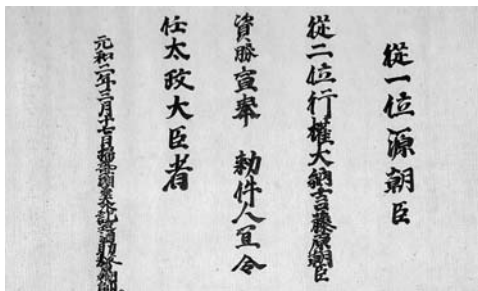 從一位源朝臣
從二位行權大納言藤原朝臣
資勝宣奉 勅件人宜令
任太政大臣者
元和二年三月十七日掃部頭兼大外記